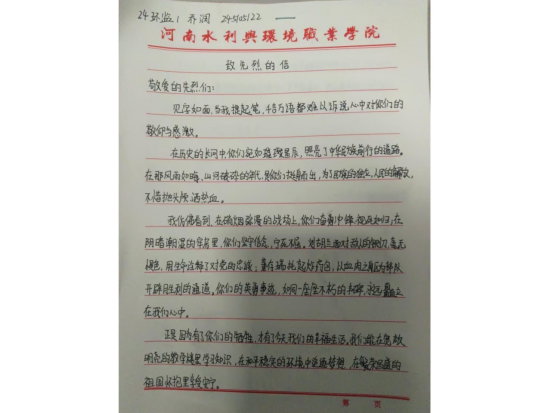 24环监1 乔润 245105122
河南水利與環境職業學院
致先烈的信
敬爱的先烈们:
见字如面,当我提起笔,千言万语都难以诉说心中对你们的
敬仰与感激。
在历史的长河中,你们宛如璀璨星辰,照亮了中华民族前行的道路。
在那风雨如晦、山河破碎的年代,是你们挺身而出,为了民族的独立、人民的解放,
不惜抛头颅洒热血。
我仿佛看到,在硝烟弥漫的战场上,你们奋勇冲锋,视死如归;在
阴暗潮湿的牢房里,你们坚守信念,宁死不屈。刘胡兰面对敌人的铡刀,毫无
惧色,用生命诠释了对党的忠诚;董存瑞托起炸药包,以血肉之躯为部队
开辟胜利的通道。你们的英勇事迹,如同一座座不朽的丰碑,永远矗立
在我们心中。
正是因为有了你们的牺牲,才有了今天我们的幸福生活。我们能在宽敞
明亮的教学楼里学习知识,在和平稳定的环境中追逐梦想,在繁荣昌盛的
祖国怀抱里享受安宁。
第 页